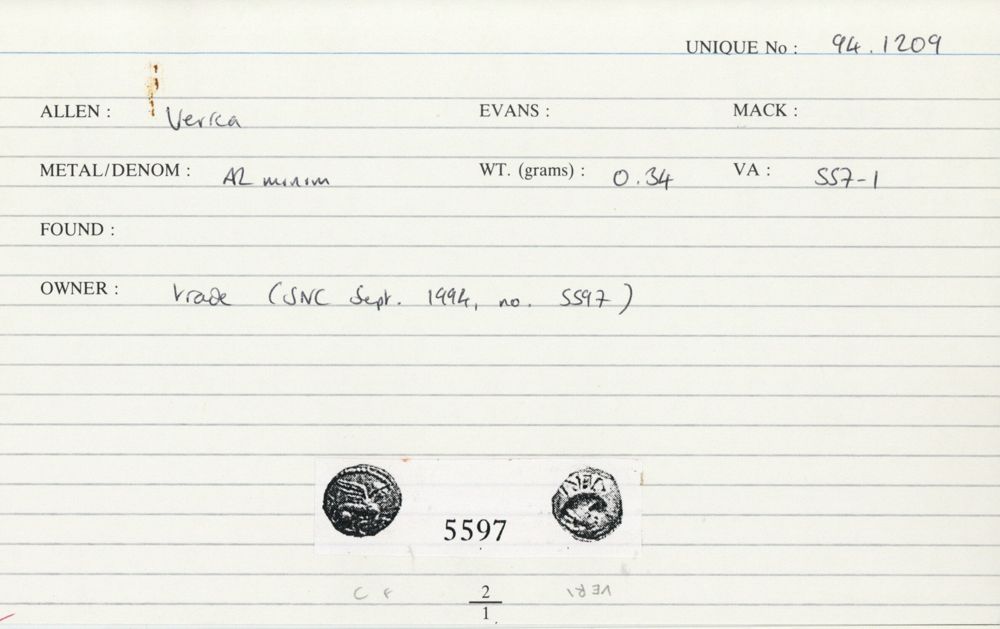 UNIQUE No : 94.1209
ALLEN : Verica EVANS : MACK :
METAL/DENOM : AR minim WT. (grams) : 0.34 VA : 557-1
FOUND :
OWNER : trade (SNC Sept. 1994, no. 5597)
5597
C F 2/1 VERI